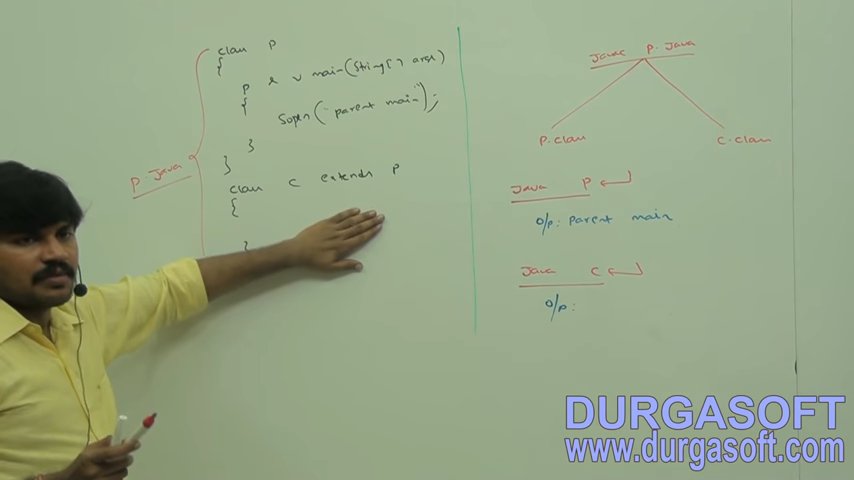 class P
{
P s v main(String[] args)
{
Sopln("parent main");
}
}
class C extends P
{
}
P.Java
Javac P.Java
P.class
C.class
Java P
O/P: parent main
Java C
O/P:
DURGASOFT
www.durgasoft.com